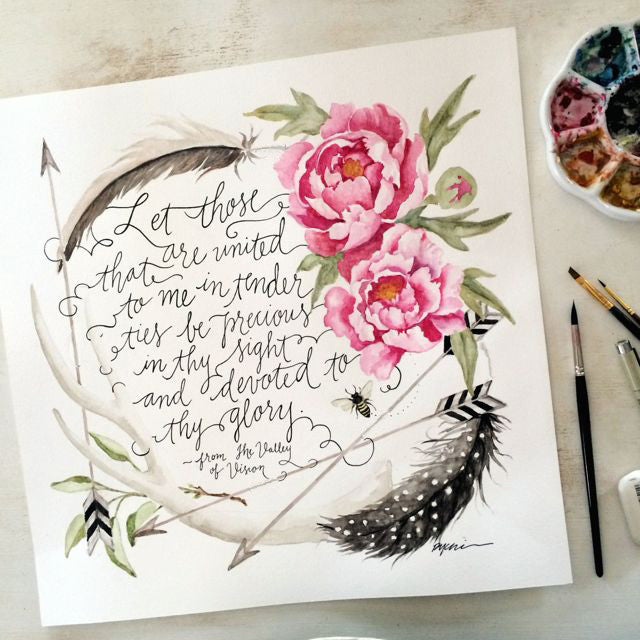 Let those
that are united
to me in tender
ties be precious
in thy sight
and devoted to
thy glory.
~from The Valley
of Vision